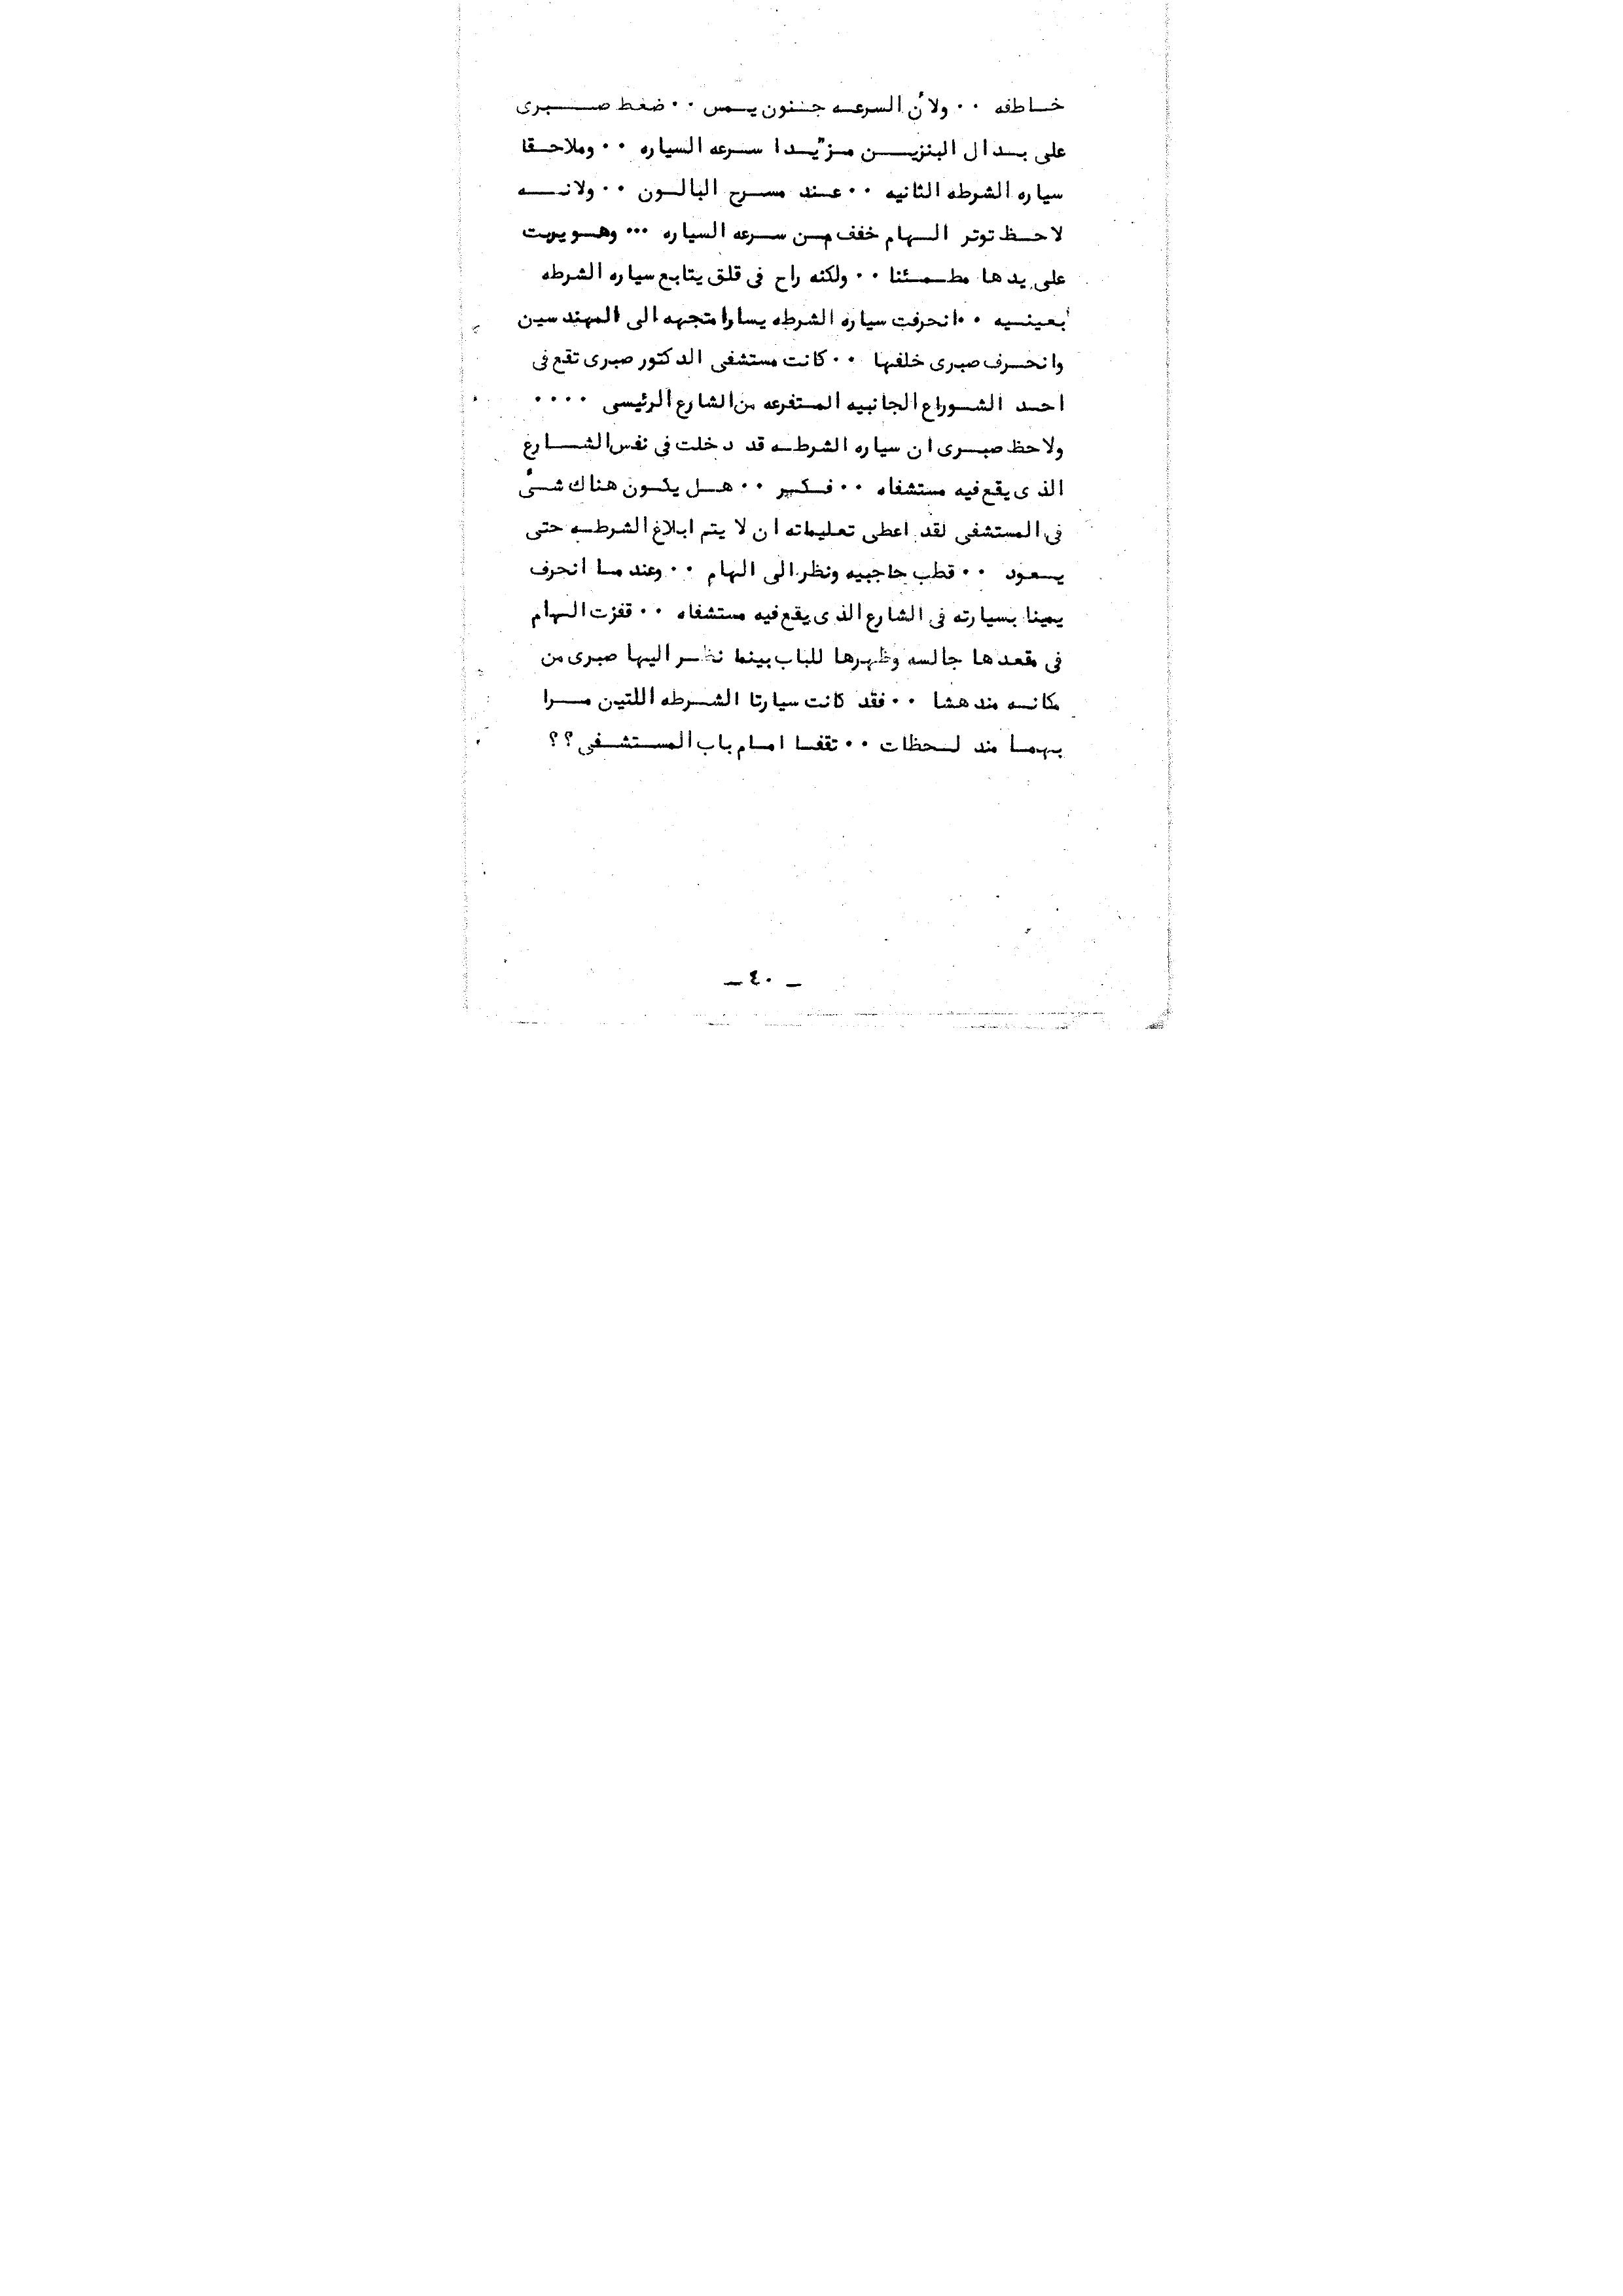 خاطفه ٠٠ ولأن السرعه جنون يمس ٠٠ ضغط صبرى
على بدال البنزين مزيدا سرعه السياره ٠٠ وملاحقا
سياره الشرطه الثانيه ٠٠ عند مسرح البالون ٠٠ ولانه
لاحظ توتر الهام خفف من سرعه السياره ٠٠٠ وهو يربت
على يدها مطمئنا ٠٠ ولكنه راح فى قلق يتابع سياره الشرطه
بعينيه ٠٠ انحرفت سياره الشرطه يسارا متجهه الى المهندسين
وانحرف صبرى خلفها ٠٠ كانت مستشفى الدكتور صبرى تقع فى
احد الشوراع الجانبيه المتفرعه من الشارع الرئيسى ٠٠٠٠
ولاحظ صبرى ان سياره الشرطه قد دخلت فى نفس الشارع
الذى يقع فيه مستشفاه ٠٠ فكر ٠٠ هل يكون هناك شئ
فى المستشفى لقد اعطى تعليماته ان لا يتم ابلاغ الشرطه حتى
يعود ٠٠ قطب حاجبيه ونظر الى الهام ٠٠ وعندما انحرف
يمينا بسيارته فى الشارع الذى يقع فيه مستشفاه ٠٠ قفزت الهام
فى مقعدها جالسه وظهرها للباب بينما نظر اليها صبرى من
مكانه مندهشا ٠٠ فقد كانت سيارتا الشرطه اللتين مرا
بهما منذ لحظات ٠٠ تقفا امام باب المستشفى ؟؟
ـ ٤٠ ـ